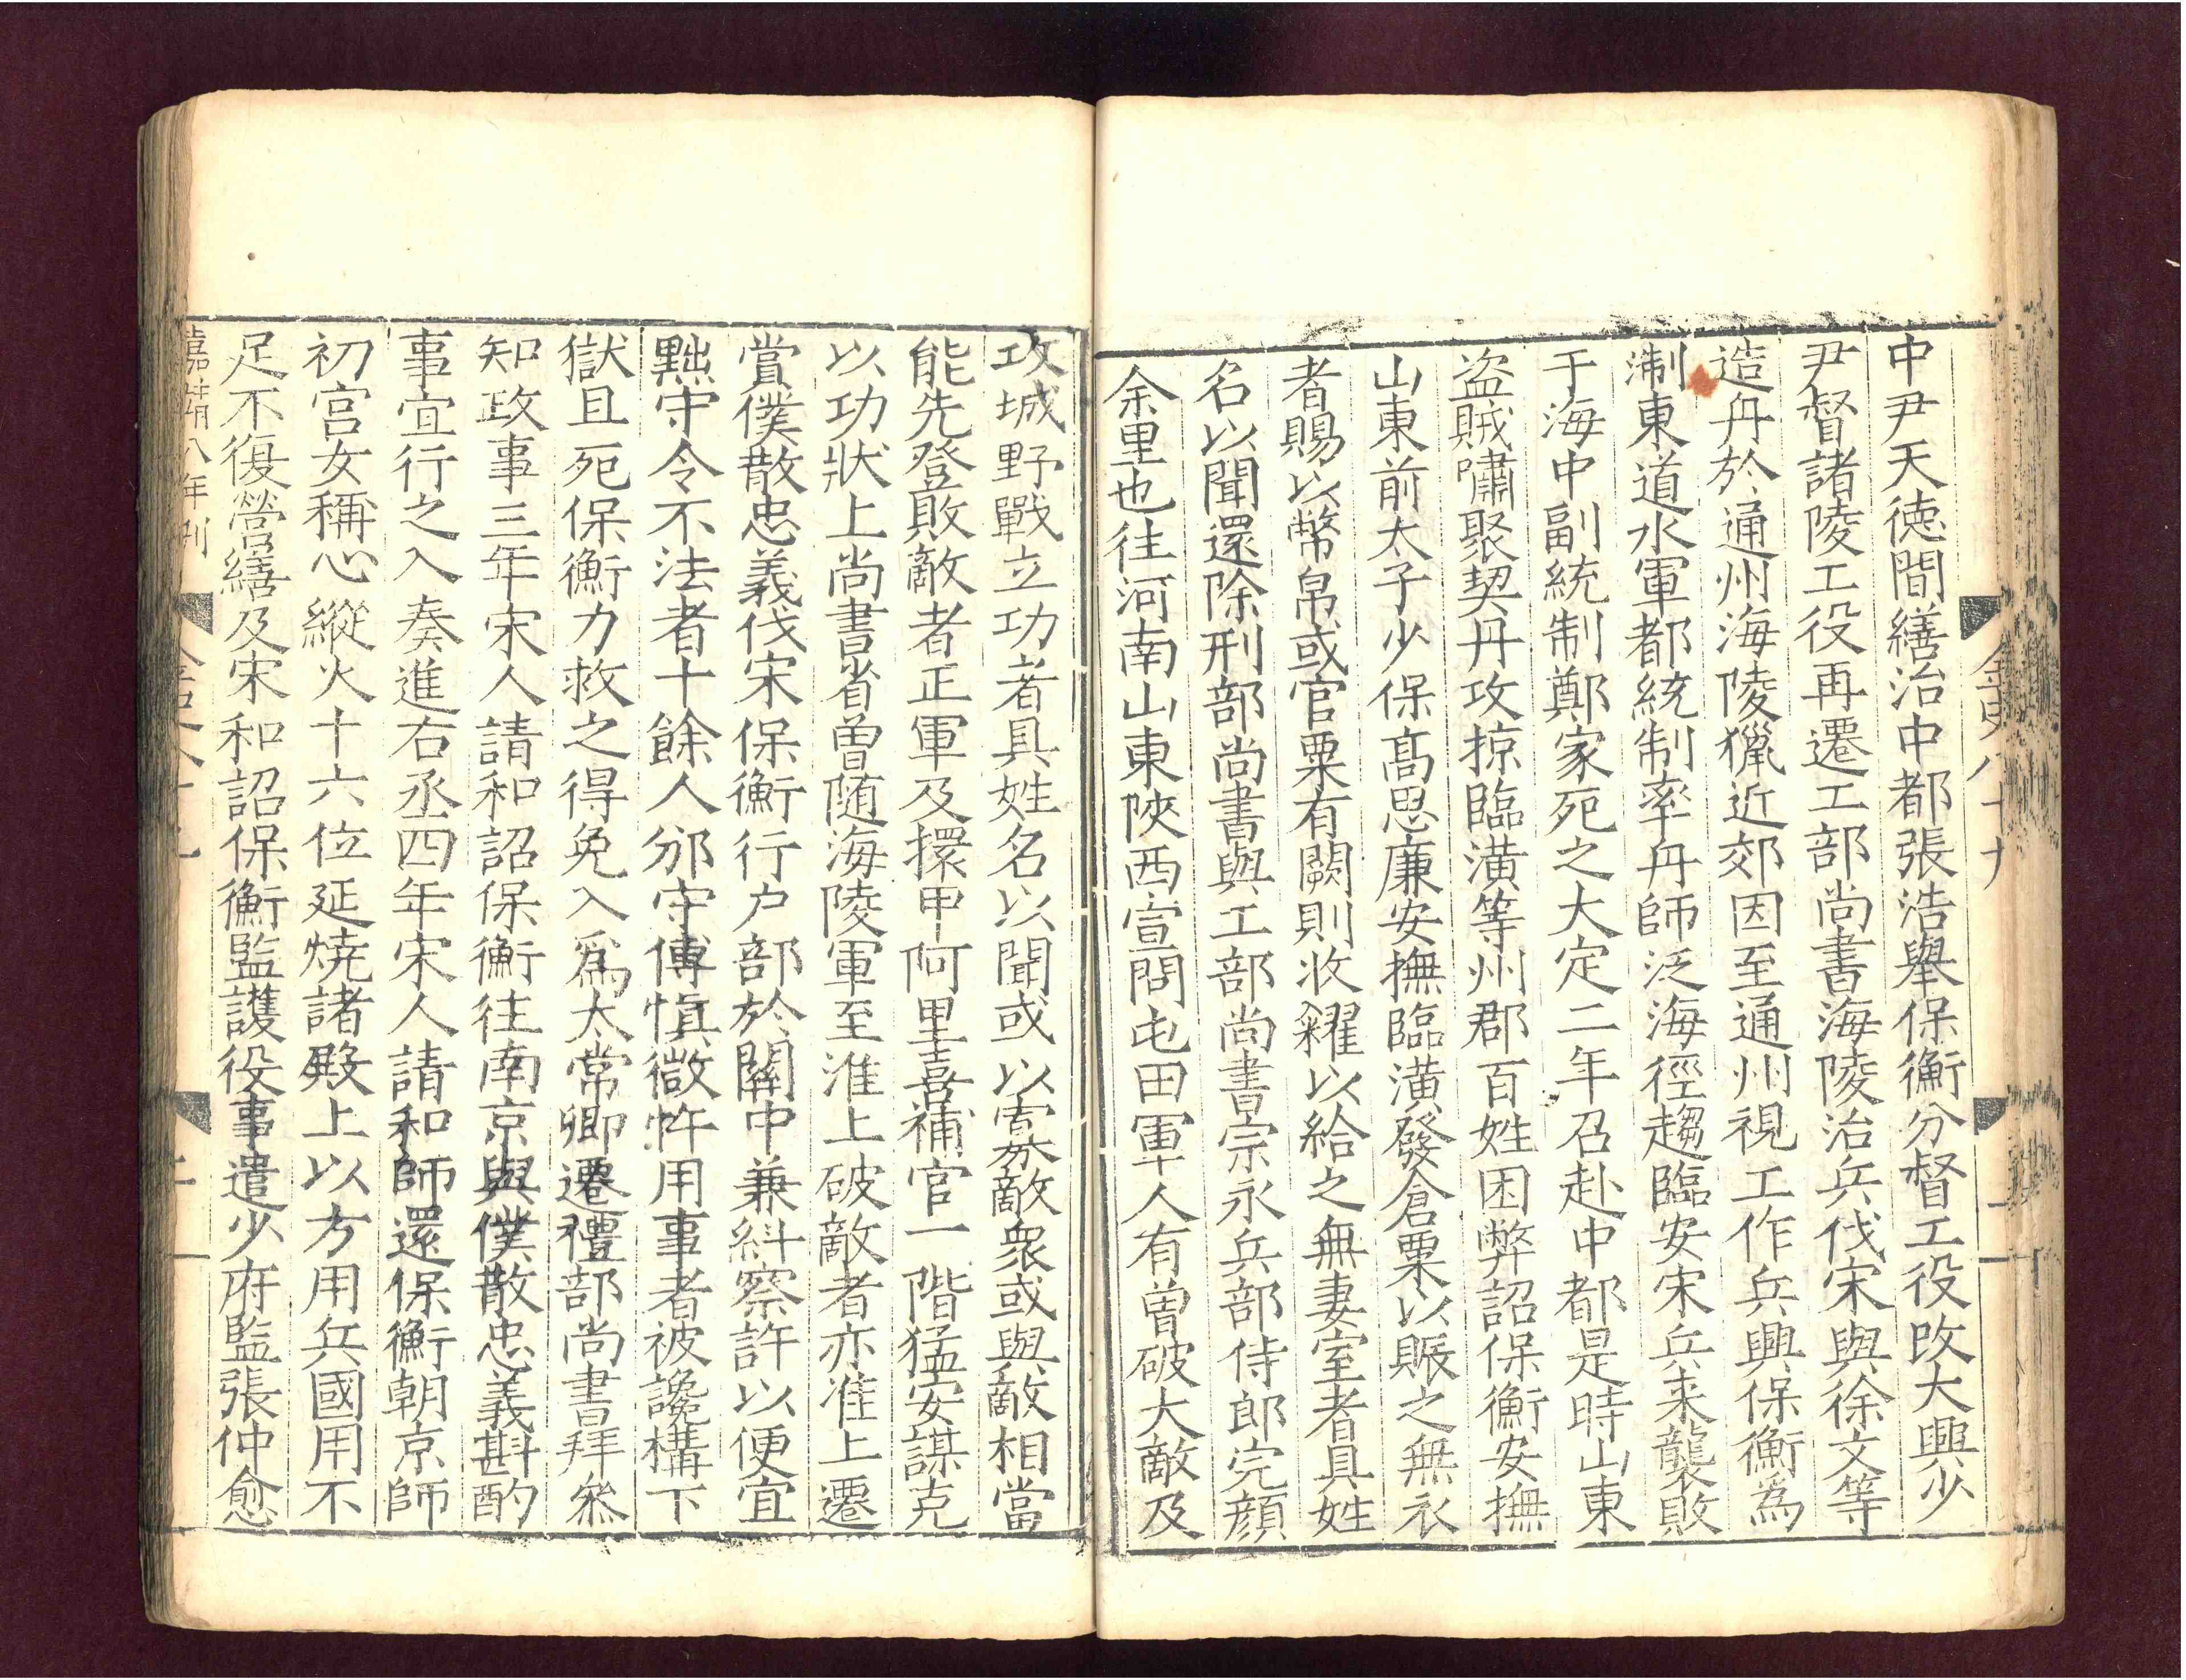 金史八十九
二
中尹天徳間繕治中都張浩舉保衡分督工役改大興少
尹督諸陵工役再遷工部尚書海陵治兵伐宋與徐文等
造舟於通州海陵獵近郊因至通州視工作兵興保衡為
浙東道水軍都統制率舟師泛海徑趨臨安宋兵来襲敗
于海中副統制鄭家死之大定二年召赴中都是時山東
盗賊嘯聚契丹攻掠臨潢等州郡百姓困弊詔保衡安撫
山東前太子少保髙思廉安撫臨潢發倉粟以賑之無衣
者賜以幣帛或官粟有闕則收糴以給之無妻室者具姓
名以聞還除刑部尚書與工部尚書宗永兵部侍郎完顔
余里也往河南山東陝西宣問屯田軍人有曽破大敵及
攻城野戰立功者具姓名以聞或以寡敵衆或與敵相當
能先登敗敵者正軍及擐甲阿里喜補官一階猛安謀克
以功狀上尚書省曽随海陵軍至淮上破敵者亦准上遷
賞僕散忠義伐宋保衡行户部於關中兼糾察許以便宜
黜守令不法者十餘人邠守傅慎微忤用事者被讒構下
獄且死保衡力救之得免入爲太常卿遷禮部尚書拜叅
知政事三年宋人請和詔保衡往南京與僕散忠義斟酌
事宜行之入奏進右丞四年宋人請和師還保衡朝京師
初宫女稱心縱火十六位延燒諸殿上以方用兵國用不
足不復營繕及宋和詔保衡監護役事遣少府監張仲愈
嘉靖八年刊